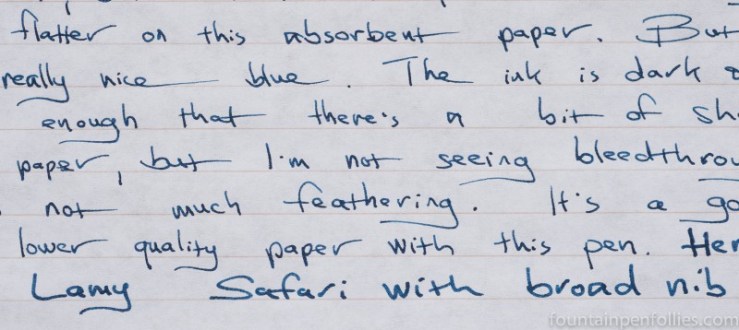 flatter on this absorbent paper. But
really nice blue. The ink is dark
enough that there's a bit of sh
paper, but I'm not seeing bleedthrou
not much feathering. It's a go
lower quality paper with this pen. Her
Lamy Safari with broad nib
fountainpenfollies.com